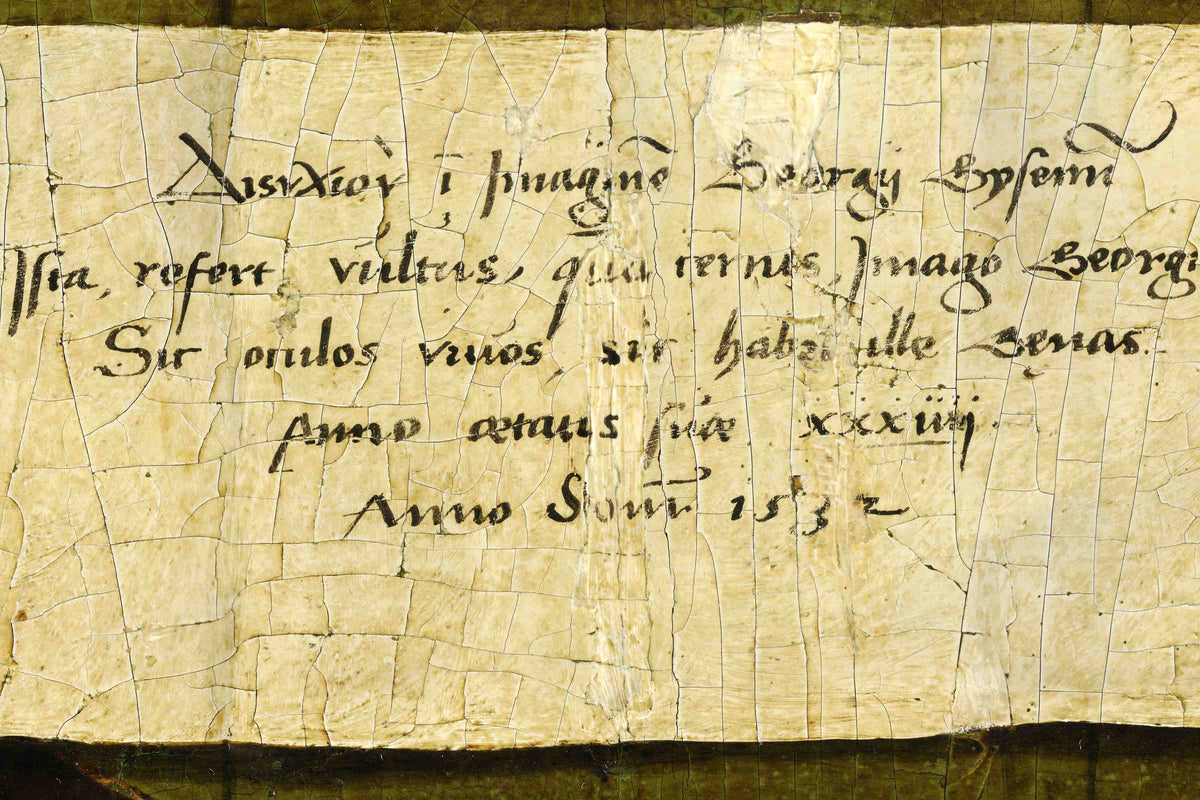 Δισιχιοv̀ ī Imaginē Georgij Gysenn̄
Ista, refert, vultus, quā cernis, Imago Georgi
Sic oculos viuos, sic habet ille Genas.
Anno ætatis suæ xxxiiij.
Anno Dom̄ 1532